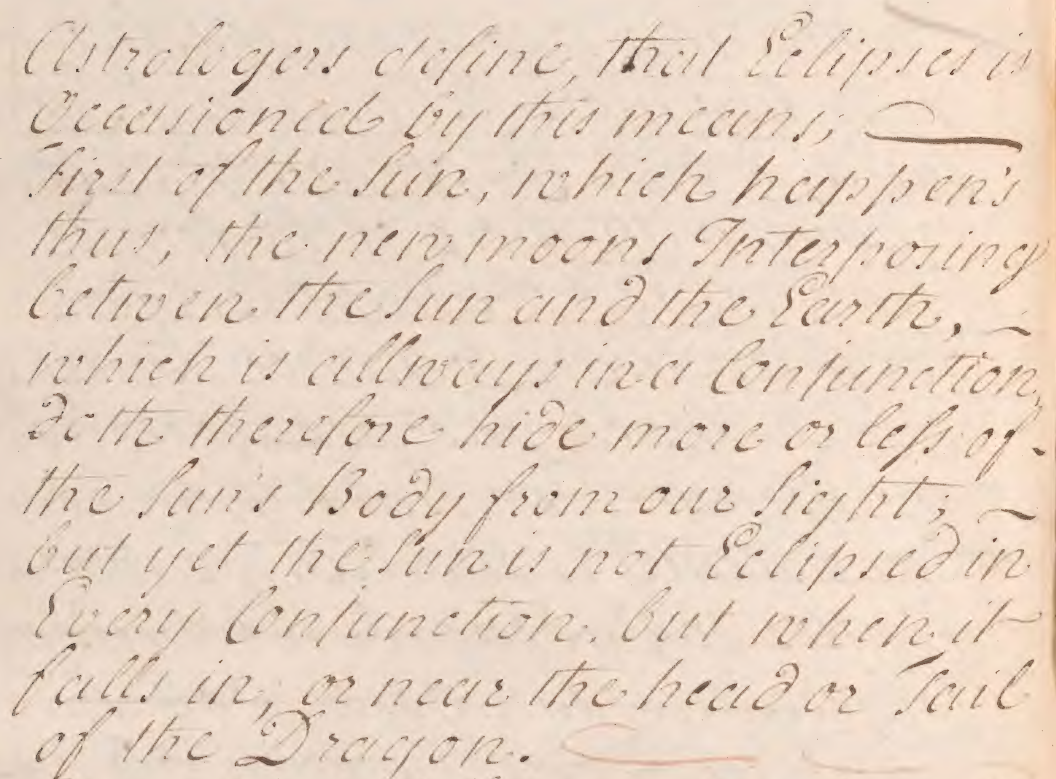 Astrologers define, that Eclipses is
Occasioned by this means;
First of the Sun, which happen's
thus, the new moons Interposing
betwen the Sun and the Earth,
which is allways in a Conjunction,
Doth therefore hide more or less of
the Sun's Body from our Sight;
but yet the Sun is not Eclipsed in
Every Conjunction. but when it
falls in, or near the head or Tail
of the Dragon.